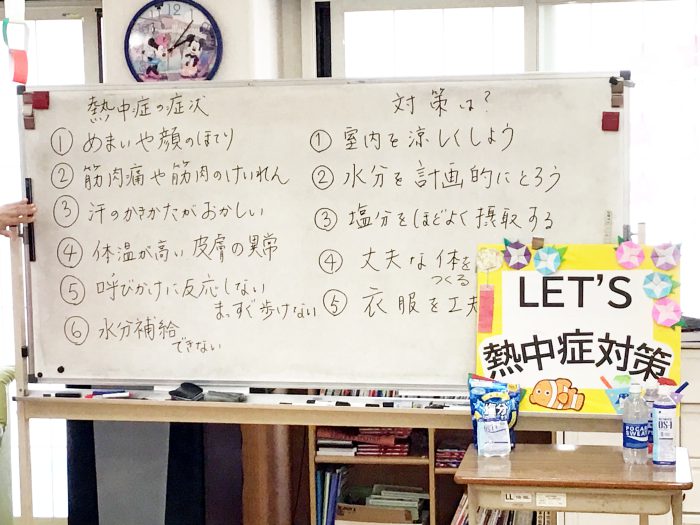 熱中症の症状
① めまいや顔のほてり
② 筋肉痛や筋肉のけいれん
③ 汗のかきかたがおかしい
④ 体温が高い 皮膚の異常
⑤ 呼びかけに反応しない
まっすぐ歩けない
⑥ 水分補給
できない
対策は?
① 室内を涼しくしよう
② 水分を計画的にとろう
③ 塩分をほどよく摂取する
④ 丈夫な体を
つくる
⑤ 衣服を工夫
LET'S
熱中症対策
POCARI
SWEAT
OS-1
LL